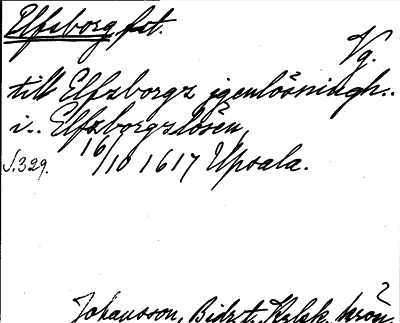 Elfsborg, fst.
Vg.
till Elfzborgz jgenlösningh..
i.. Elfzborgzlösen,
16/10 1617 Upsala.
S. 329.
Johansson, Bidr. t. Kalek. krön.